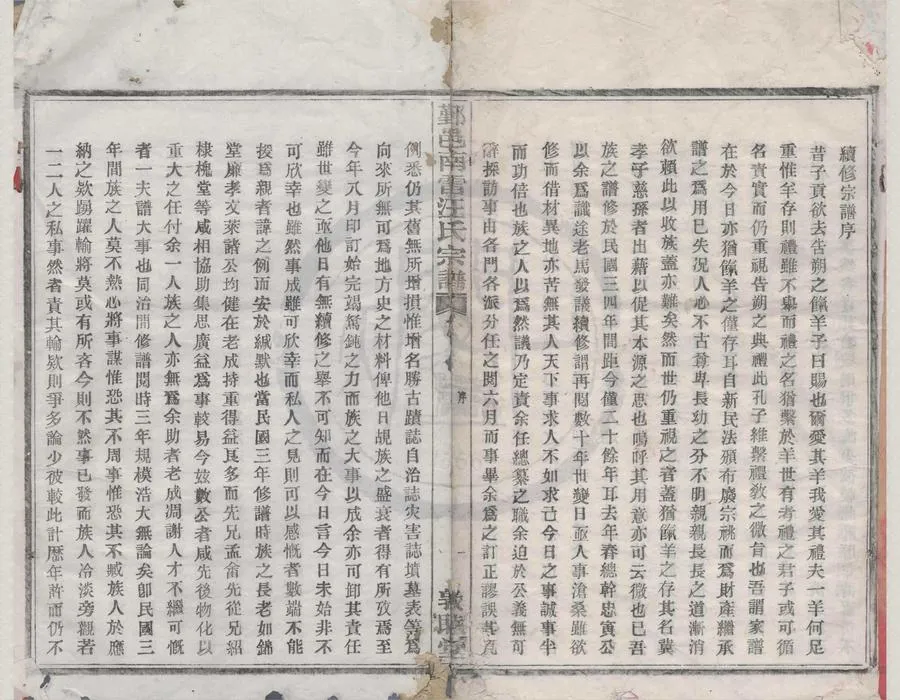 續修宗譜序
昔子貢欲去告朔之餼羊子曰賜也爾愛其羊我愛其禮夫一羊何足
重惟羊存則禮雖不舉而禮之名猶繫於羊世有考禮之君子或可循
名責實而仍重視告朔之典禮此孔子維繫禮敎之微旨也吾謂家譜
在於今日亦猶餼羊之僅存耳自新民法頒布廢宗祧而爲財產繼承
譜之爲用已失况人心不古尊卑長幼之分不明親親長長之道漸消
欲賴此以收族蓋亦難矣然而世仍重視之者蓋猶餼羊之存其名冀
孝子慈孫者出藉以促其本源之思也嗚呼其用意亦可云微也已吾
族之譜修於民國三四年間距今僅二十餘年耳去年春總幹忠寅公
以余爲識途老馬發議續修謂再閱數十年世變日亟人事滄桑雖欲
修而借材異地亦苦無其人天下事求人不如求己今日之事誠事半
而功倍也族之人以爲然議乃定責余任總纂之職余迫於公義無可
辭採訪事由各門各派分任之閱六月而事畢余爲之訂正謬誤其凡
例悉仍其舊無所增損惟增名勝古蹟誌自治誌灾害誌墳墓表等爲
向來所無可爲地方史之材料俾他日覘族之盛衰者得有所攷焉至
今年八月印訂始完竭駑鈍之力而族之大事以成余亦可卸其責任
雖世變之亟他日有無續修之舉不可知而在今日言今日未始非不
可欣幸也雖然事成雖可欣幸而私人之見則可以感慨者數端不能
援爲親者諱之例而安於緘默也當民國三年修譜時族之長老如錦
堂廉孝文萊諸公均健在老成持重得益良多而先兄孟畬先從兄紹
棣槐堂等咸相協助集思廣益爲事較易今玆數公者咸先後物化以
重大之任付余一人族之人亦無爲余助者老成凋謝人才不繼可慨
者一夫譜大事也同治間修譜閱時三年規模浩大無論矣卽民國三
年間族之人莫不熱心將事謀惟恐其不周事惟恐其不臧族人於應
納之欵踴躍輸將莫或有所吝今則不然事已發而族人冷淡旁觀若
一二人之私事然者責其輸欵則爭多論少彼較此計歷年許而仍不
鄞邑南雷汪氏宗譜
序
一
敦睦堂